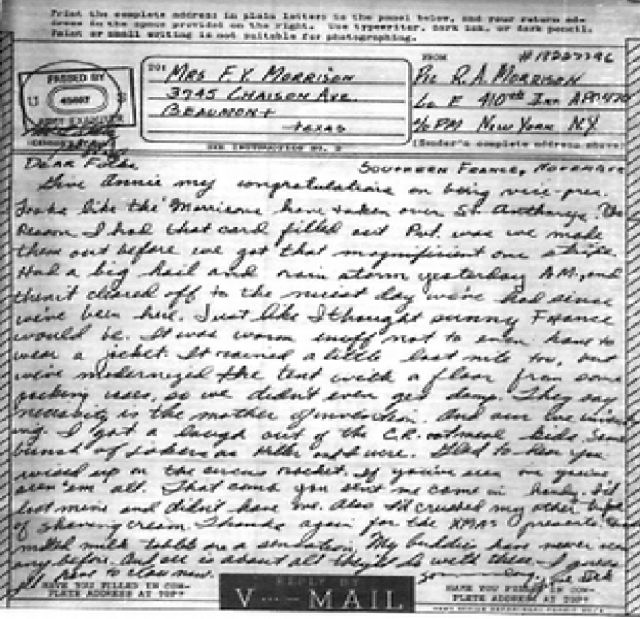 Print the complete address in plain letters in the panel below, and your return address in the space provided on the right. Use typewriter, dark ink, or dark pencil.
Faint or small writing is not suitable for photographing.
PASSED BY
U S
ARMY EXAMINER
TO:
MRS F. V. MORRISON
3745 CHAISON AVE.
BEAUMONT
TEXAS
FROM
# 18227796
PVT R. A. MORRISON
Co F 410th INF APO 470
% PM NEW YORK N.Y.
SEE INSTRUCTION NO. 2
(Sender's complete address above)
SOUTHERN FRANCE, NOVEMBER
Dear Folks
Give Annie my congratulations on being vice-pres.
Looks like the Morrisons have taken over St. Anthonys. The
reason I had that card filled out Pvt. was we made
them out before we got that magnificient one stripe.
Had a big hail and rain storm yesterday A.M., and
then it cleared off to the nicest day we've had since
we've been here. Just like I thought sunny France
would be. It was warm enuff not to even have to
wear a jacket. It rained a little last nite too, but
we've modernized the tent with a floor from some
packing cases, so we didn't even get damp. They say
necessity is the mother of invention. And our
I got a laugh out of the oatmeal kids. Some
bunch of as were. Glad to hear you
up on the circus racket. If you've seen one you've
seen 'em all. That comb you sent me came in handy. I'd
lost mine and didn't have one. Also I'd crushed my other tube
of shaving cream. Thanks again for the XMAS presents. The
malted milk tablets are a sensation. My buddies have never seen
any before. But one is about all they'll be with these. I guess
to close now.
HAVE YOU FILLED IN COMPLETE ADDRESS AT TOP?
REPLY BY
V···— MAIL
HAVE YOU FILLED IN COMPLETE ADDRESS AT TOP?